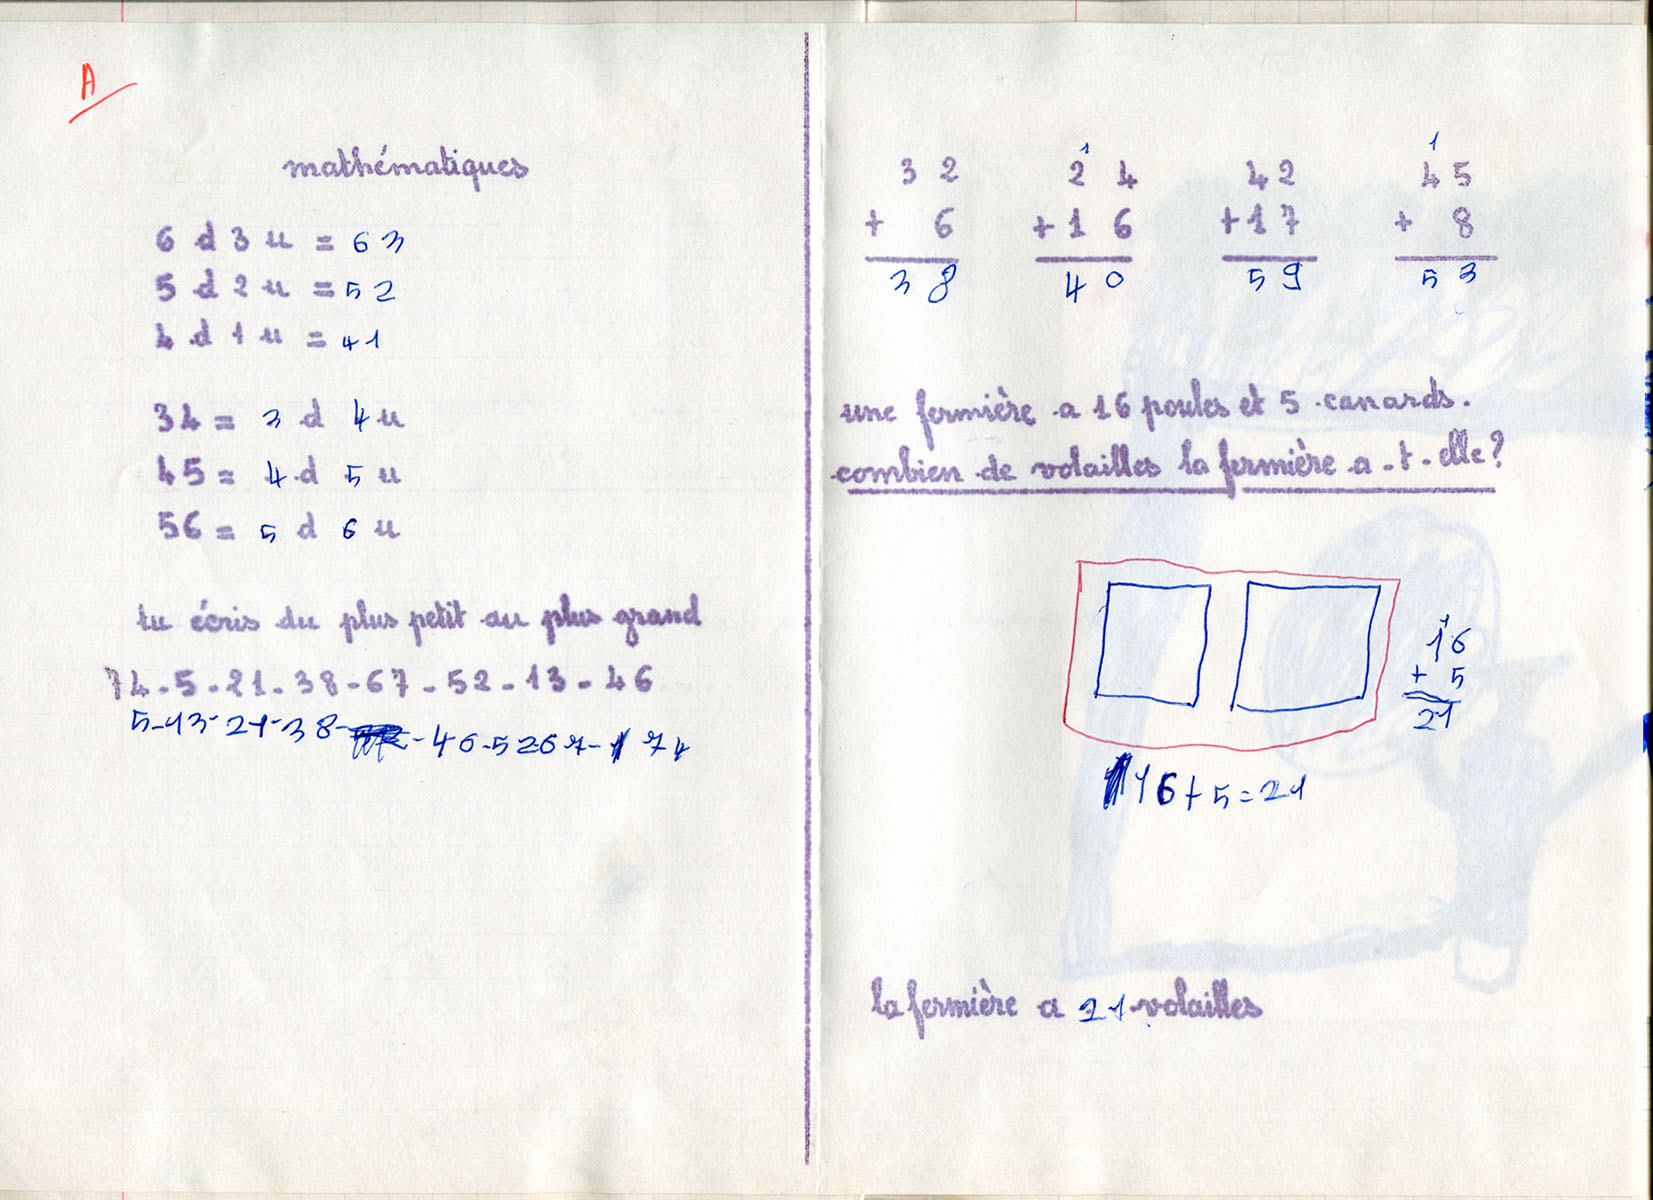 A
mathématiques
6 d 3 u = 63
5 d 2 u = 52
4 d 1 u = 41
34 = 3 d 4 u
45 = 4 d 5 u
56 = 5 d 6 u
tu écris du plus petit au plus grand
74-5-21-38-67-52-13-46
5-13-21-38- -46-5267- 74
1 1
32 24 42 45
+ 6 +16 +17 + 8
38 40 59 53
une fermière a 16 poules et 5 canards.
combien de volailles la fermière a-t-elle?
1
16
+ 5
21
16+5=21
la fermière a 21 volailles